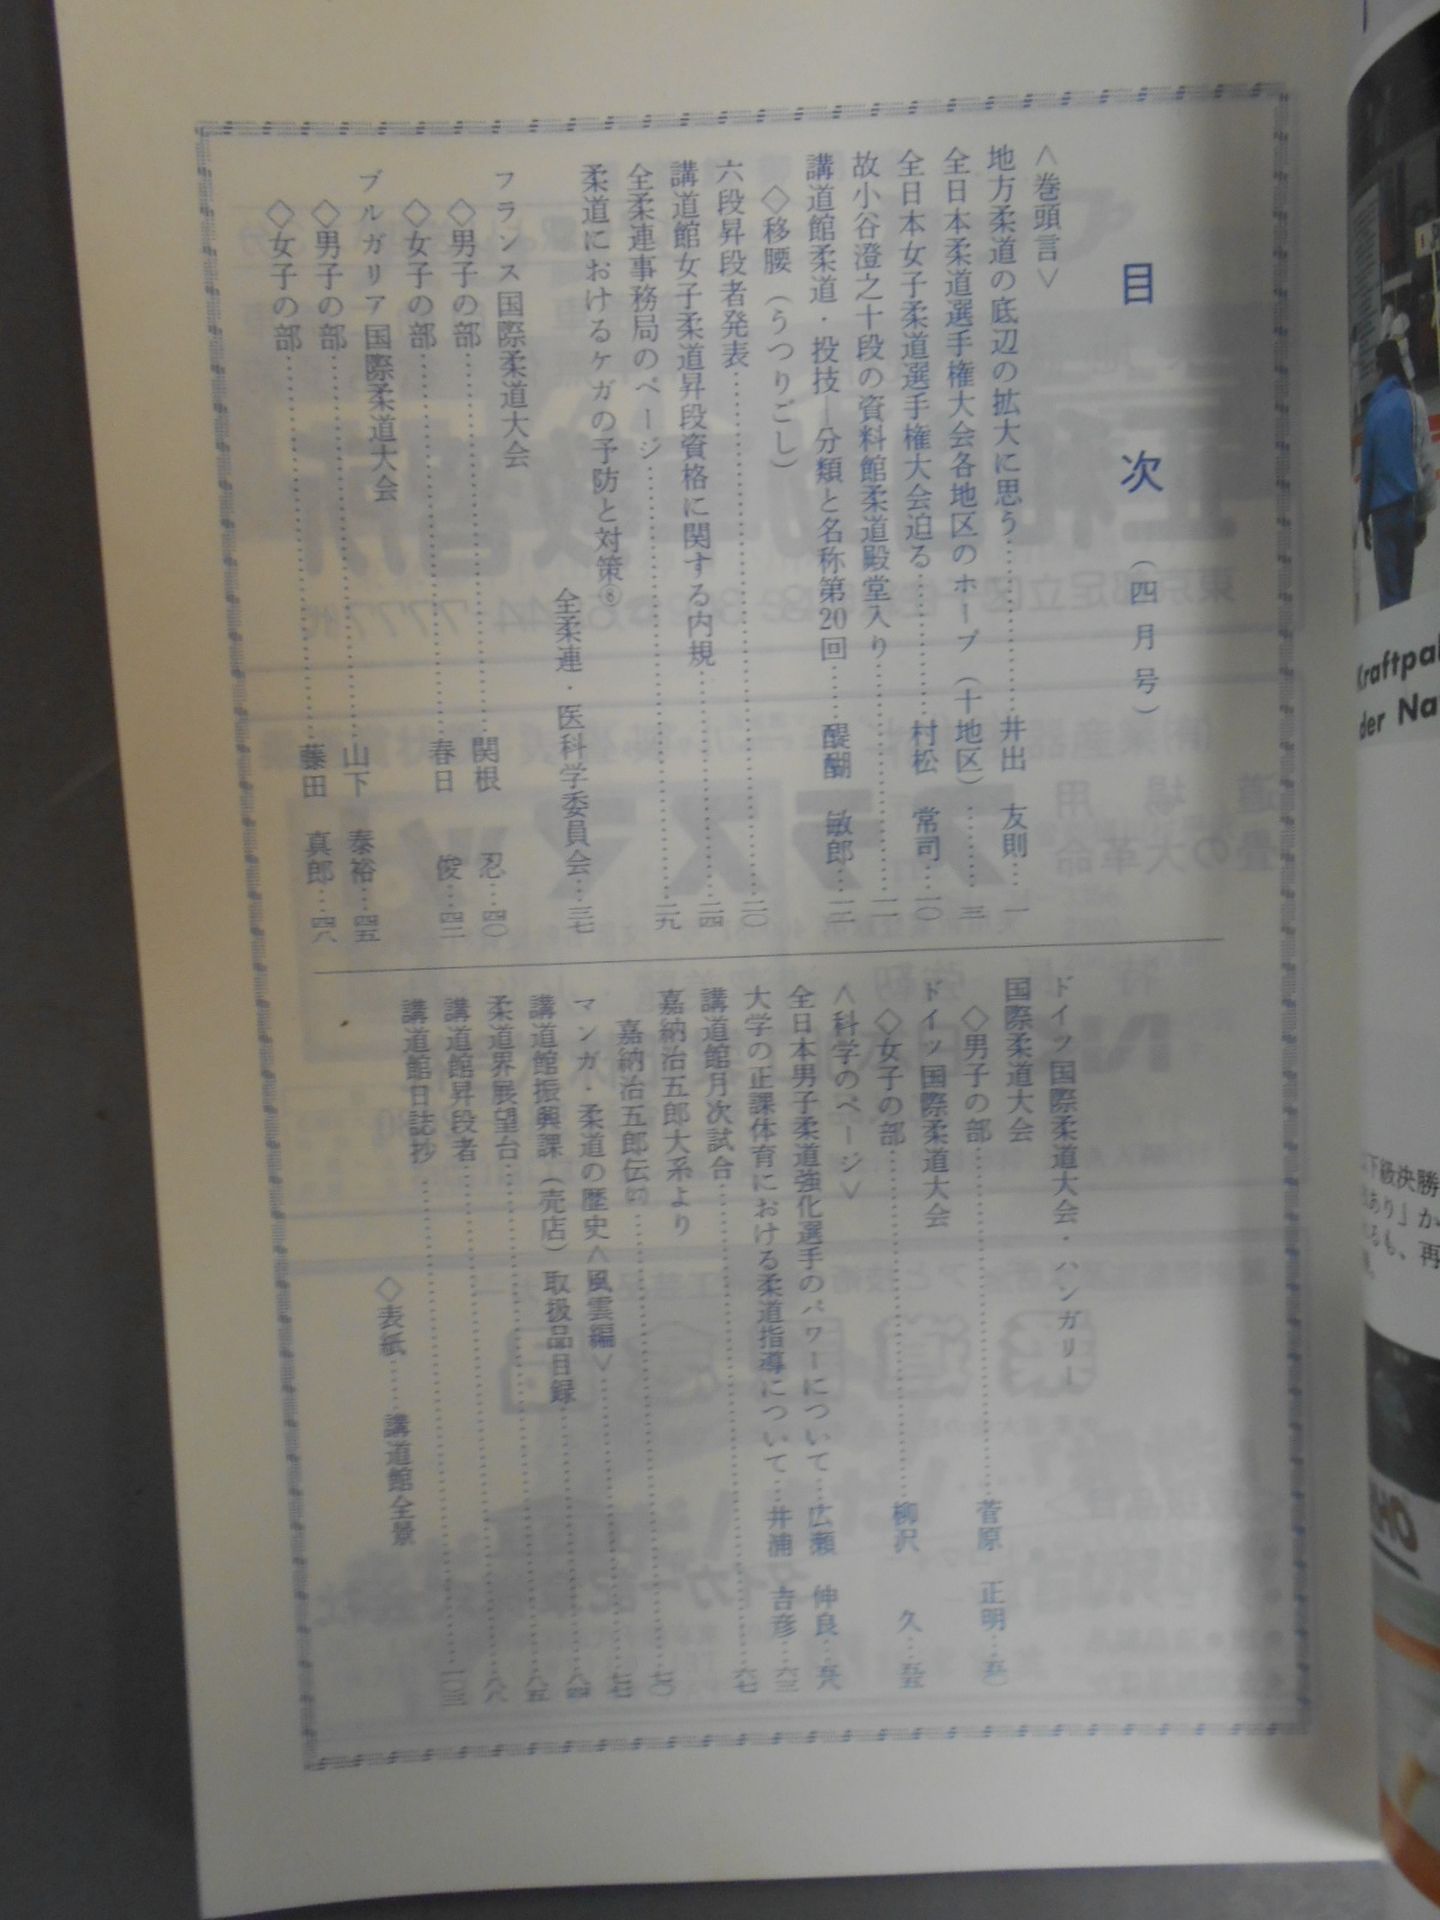 目次（四月号）
＜巻頭言＞
地方柔道の底辺の拡大に思う……井出 友則…一
全日本柔道選手権大会各地区のホープ（十地区）……三
全日本女子柔道選手権大会迫る……村松 常司…一〇
故小谷澄之十段の資料館柔道殿堂入り……一一
講道館柔道・投技―分類と名称第20回……醍醐 敏郎…一二
◇移腰（うつりごし）
六段昇段者発表……二〇
講道館女子柔道昇段資格に関する内規……二四
全柔連事務局のページ……二九
柔道におけるケガの予防と対策⑧
全柔連・医科学委員会…三七
フランス国際柔道大会
◇男子の部……関根 忍…四〇
◇女子の部……春日 俊…四二
ブルガリア国際柔道大会
◇男子の部……山下 泰裕…四五
◇女子の部……藤田 真郎…四八
ドイツ国際柔道大会・ハンガリー
国際柔道大会
◇男子の部……菅原 正明…五〇
ドイツ国際柔道大会
◇女子の部……柳沢 久…五五
＜科学のページ＞
全日本男子柔道強化選手のパワーについて…広瀬 伸良…五八
大学の正課体育における柔道指導について…井浦 吉彦…六三
講道館月次試合……六七
嘉納治五郎大系より
嘉納治五郎伝……七〇
マンガ・柔道の歴史＜風雲編＞……七七
講道館振興課（売店）取扱品目録……八四
柔道界展望台……八五
講道館昇段者……八八
講道館日誌抄……一〇三
◇表紙……講道館全景
Kraftpa
der Na
下級決勝
あり」か
るも、再
HO